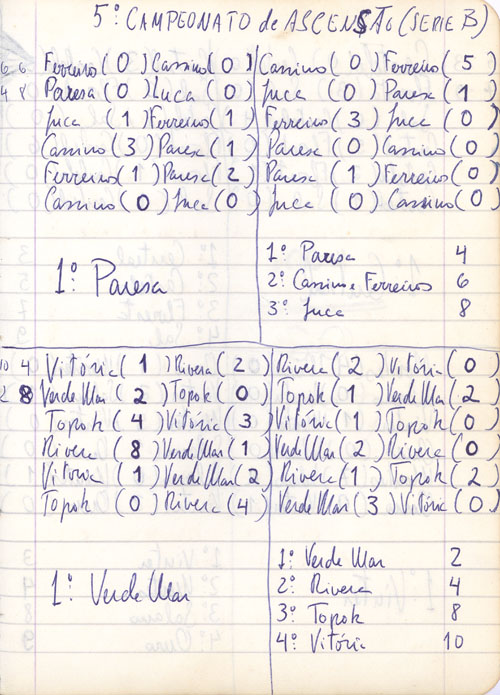 5º CAMPEONATO de ASCENSÃO (SERIE B)
6 6 Ferreiros (0) Cassino (0) Cassino (0) Ferreiros (5)
4 8 Paresa (0) Luca (0) Juca (0) Paresa (1)
Juca (1) Ferreiros (1) Ferreiros (3) Juca (0)
Cassino (3) Paresa (1) Paresa (0) Cassino (0)
Ferreiros (1) Paresa (2) Paresa (1) Ferreiros (0)
Cassino (0) Juca (0) Juca (0) Cassino (0)
1º Paresa
1º Paresa 4
2º Cassino e Ferreiros 6
3º Juca 8
10 4 Vitória (1) Rivera (2) Rivera (2) Vitória (0)
2 8 Verde Mar (2) Topok (0) Topok (1) Verde Mar (2)
Topok (4) Vitória (3) Vitória (1) Topok (0)
Rivera (8) Verde Mar (1) Verde Mar (2) Rivera (0)
Vitoria (1) Verde Mar (2) Rivera (1) Topok (2)
Topok (0) Rivera (4) Verde Mar (3) Vitória (0)
1º Verde Mar
1º Verde Mar 2
2º Rivera 4
3º Topok 8
4º Vitória 10